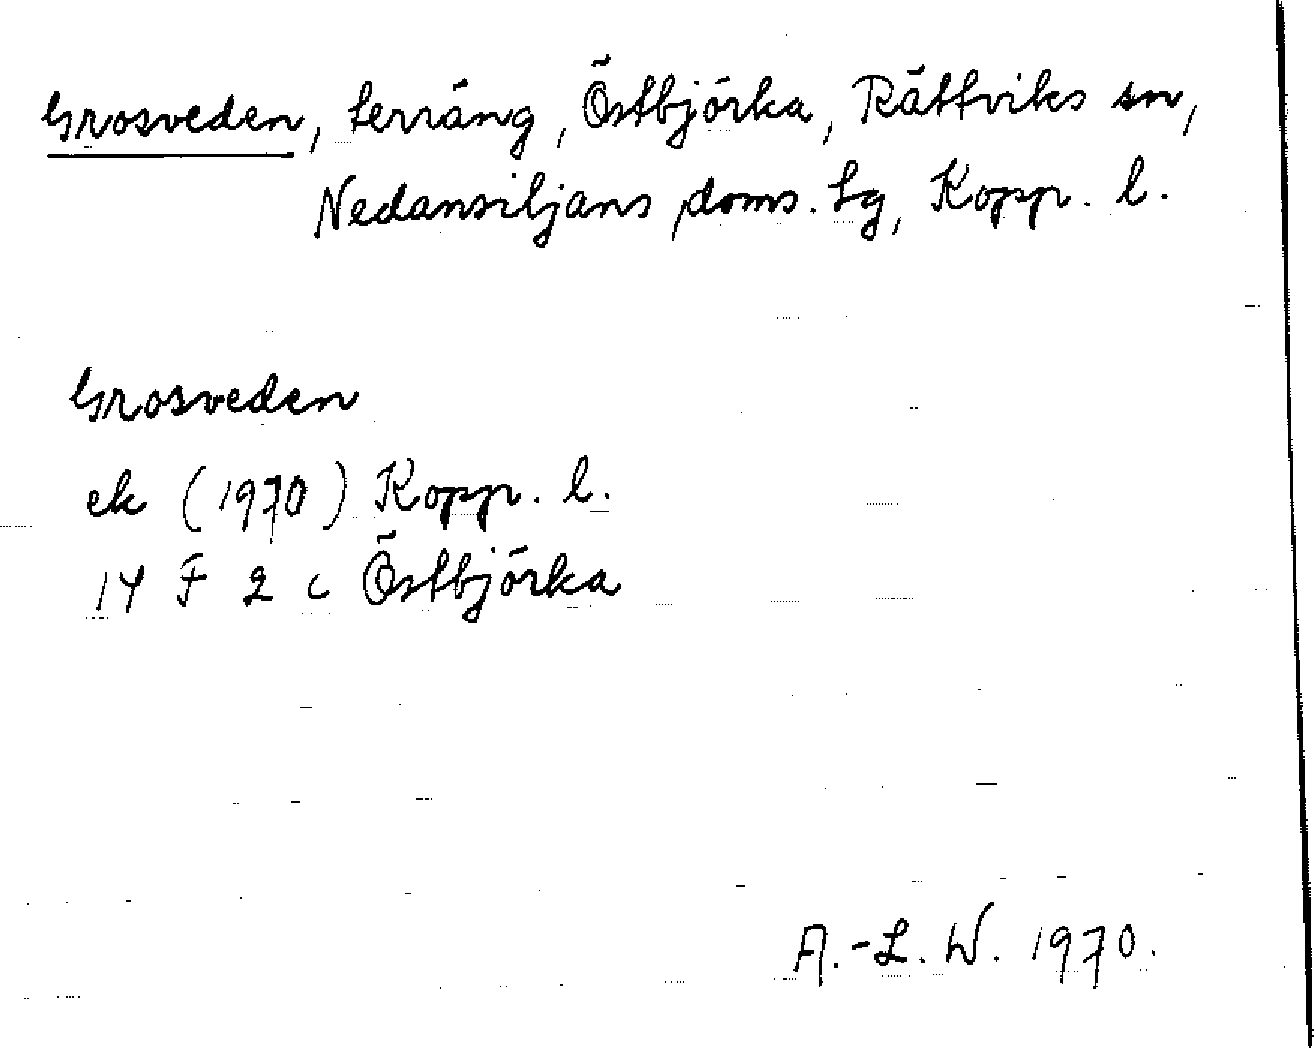 Grosveden, terräng, Östbjörka, Rättviks sn,
Nedansiljans doms. tg, Kopp. l.
Grosveden
ek (1970) Kopp. l.
14 F 2 c Östbjörka
A.-L. W. 1970.